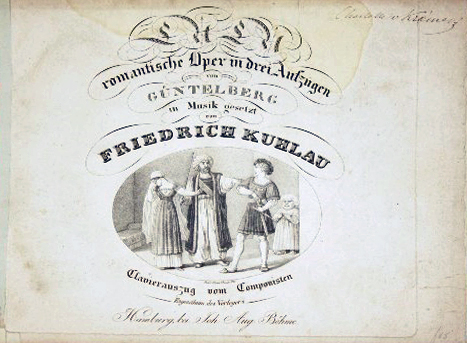 Charlotte v.
LULU
romantische Oper in drei Aufzügen
von
GÜNTELBERG
in Musik gesetzt
von
FRIEDRICH KUHLAU
Clavierauszug vom Componisten
Eigenthum des Verlegers
Hamburg, bei Joh. Aug. Böhme